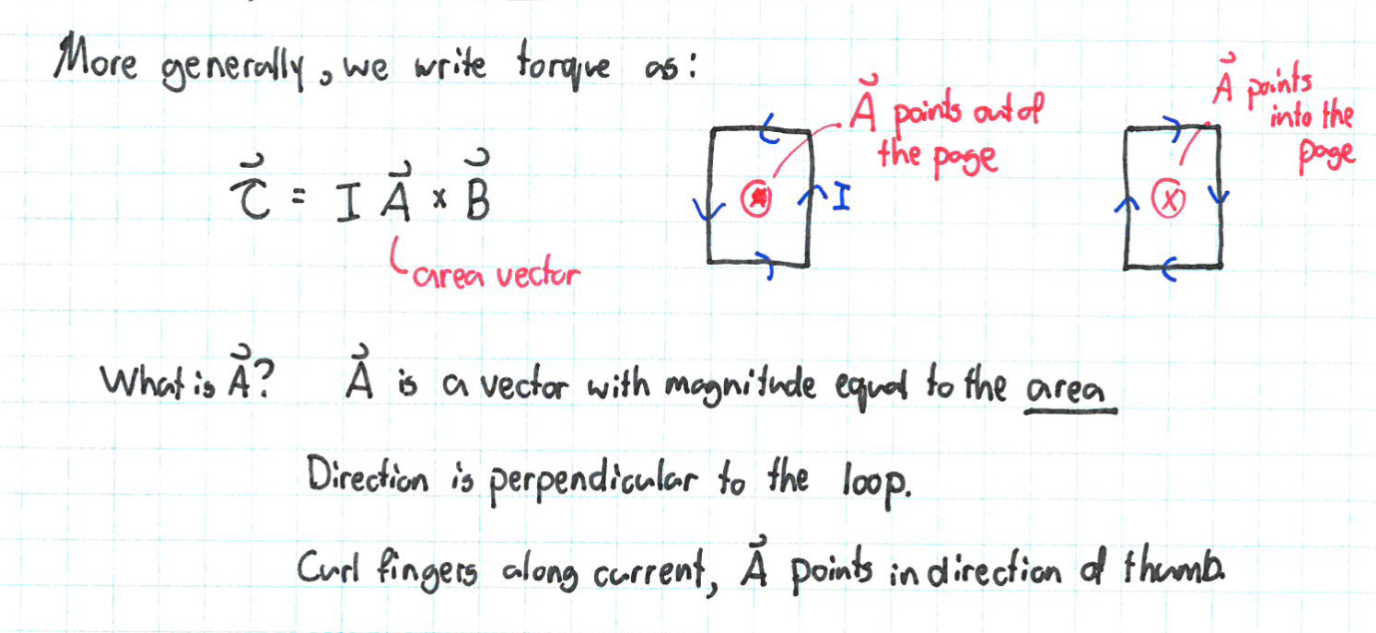 More generally, we write torque as:
τ⃗ = I A⃗ × B⃗
area vector
A⃗ points out of
the page
I
A⃗ points
into the
page
X
What is A⃗? A⃗ is a vector with magnitude equal to the area
Direction is perpendicular to the loop.
Curl fingers along current, A⃗ points in direction of thumb.